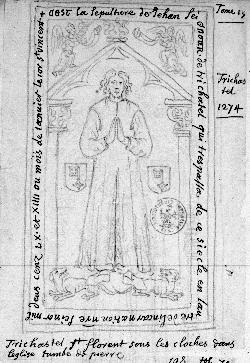 + CEST la sepulture de Jehan Se
gnour de trichastel qui trespassa de ce siecle en lan
de lincarnation nre segnor mil
deus cenz LX et XIIII ou mois de januier le ior st vincent
Trichas
tel
1274
Trichastel St florent sous les cloches dans
leglise tumbe de pierre